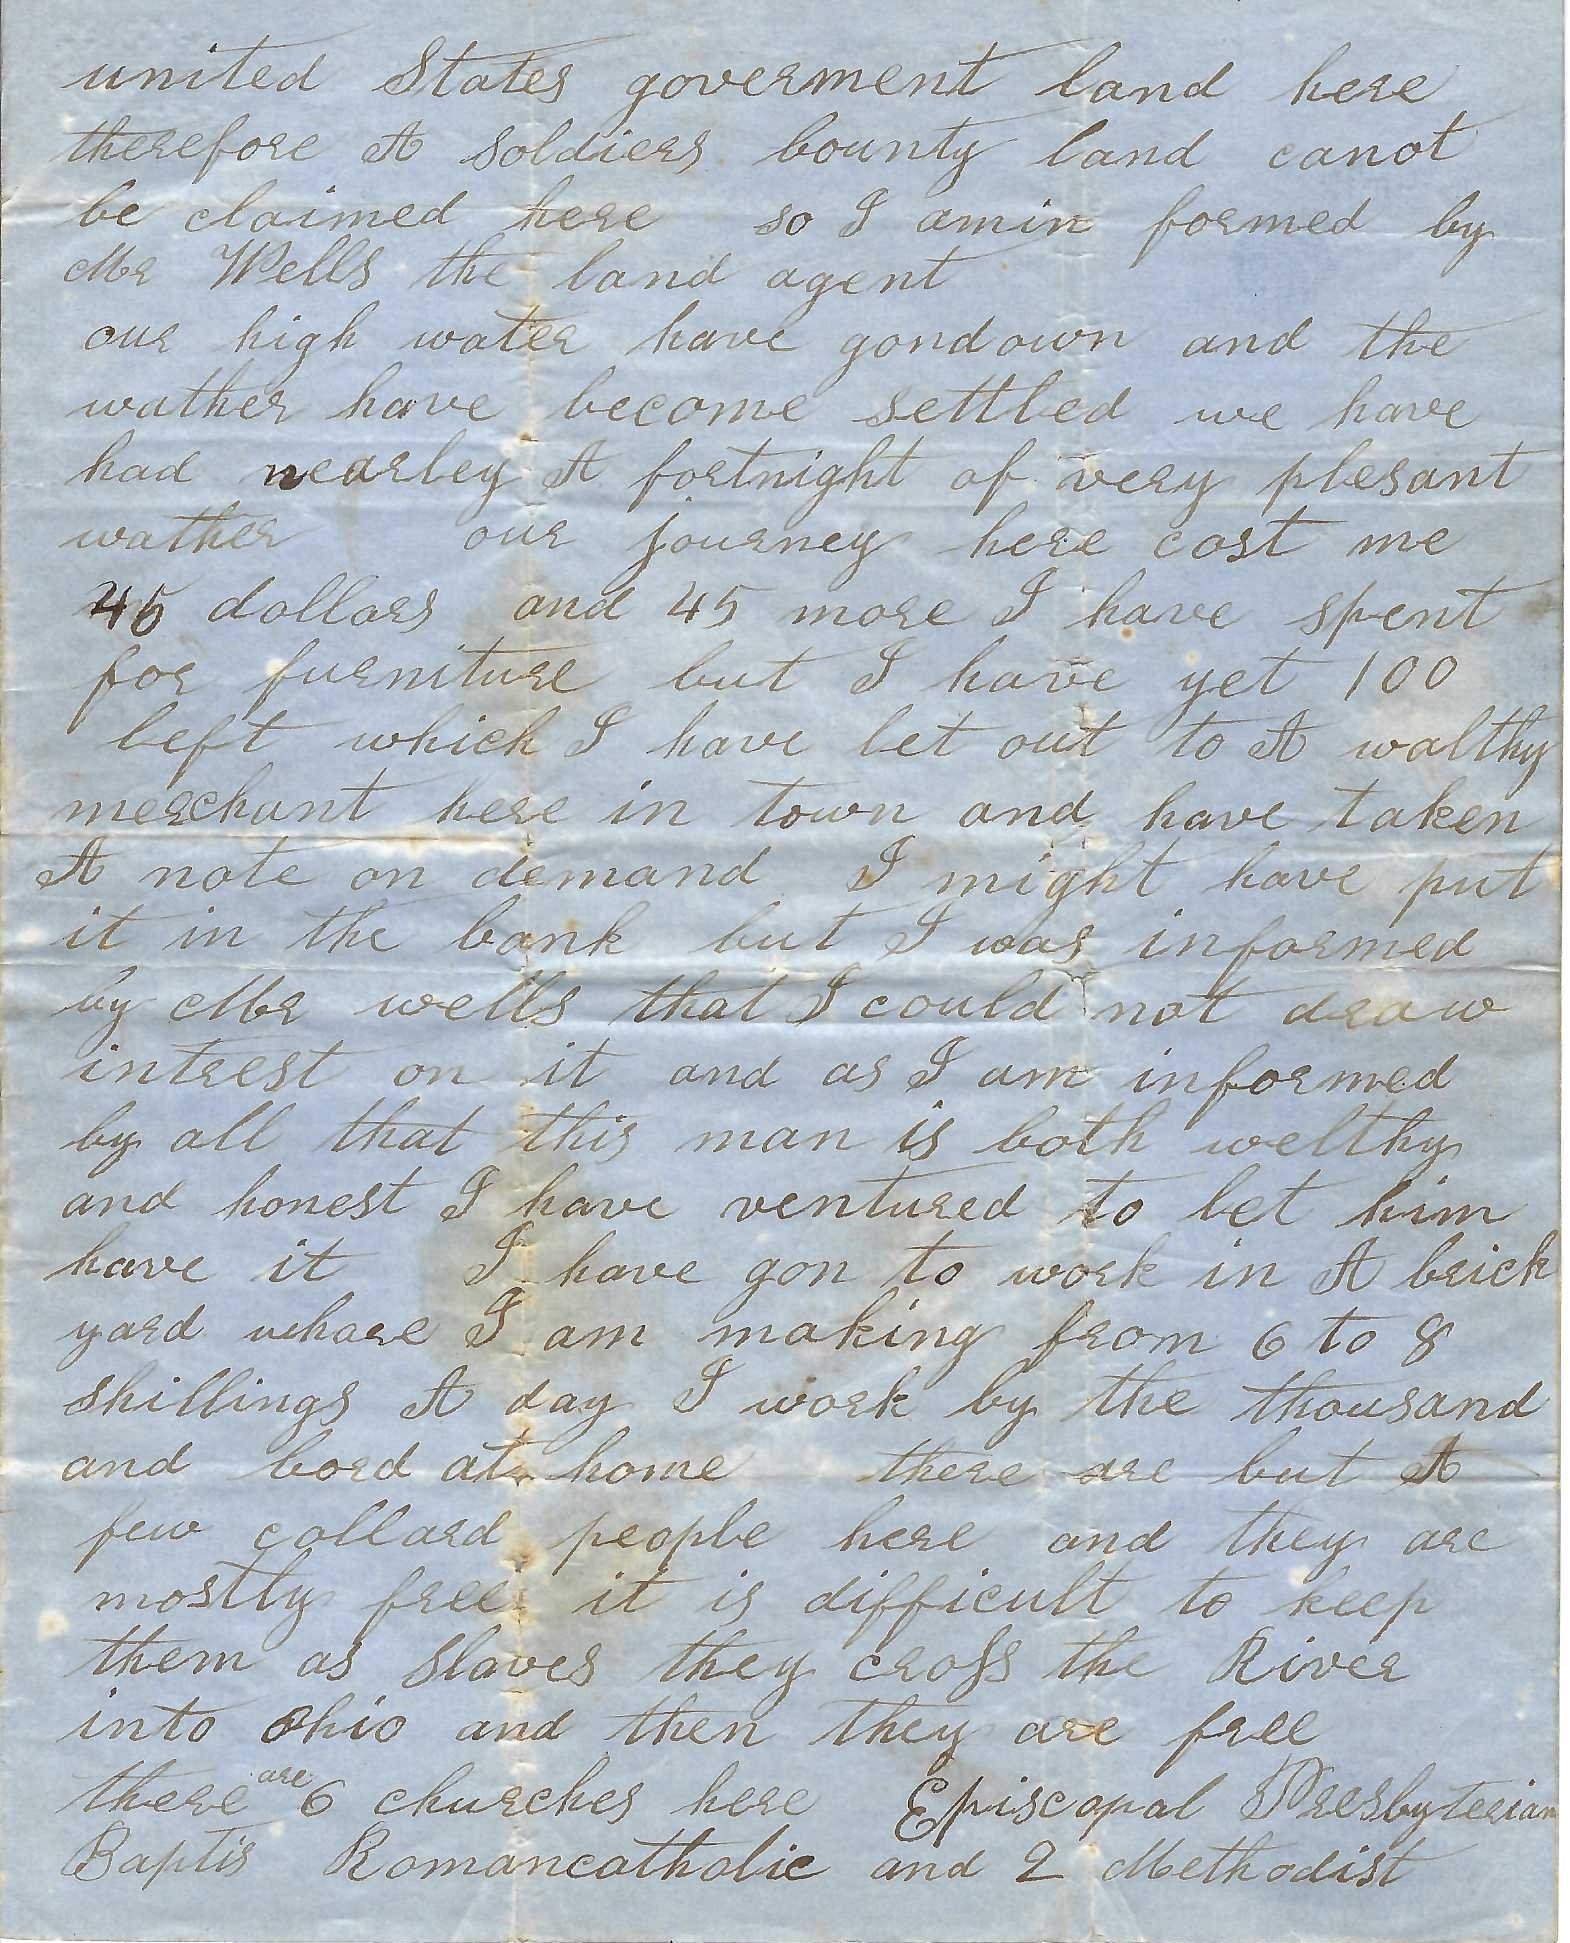 united States goverment land here
therefore A soldiers bounty land canot
be claimed here so I amin formed by
Mr Wells the land agent
our high water have gondown and the
wather have become settled we have
had nearley A fortnight of very plesant
wather our journey here cost me
45 dollars and 45 more I have spent
for furniture but I have yet 100
left which I have let out to A walthy
merchant here in town and have taken
A note on demand I might have put
it in the bank but I was informed
by Mr wells that I could not draw
intrest on it and as I am informed
by all that this man is both welthy
and honest I have ventured to let him
have it I have gon to work in A brick
yard whare I am making from 6 to 8
shillings A day I work by the thousand
and bord at home there are but A
few collard people here and they are
mostly free it is difficult to keep
them as slaves they cross the River
into Ohio and then they are free
there are 6 churches here Episcopal Presbyterian
Baptis Romancatholic and 2 Methodist